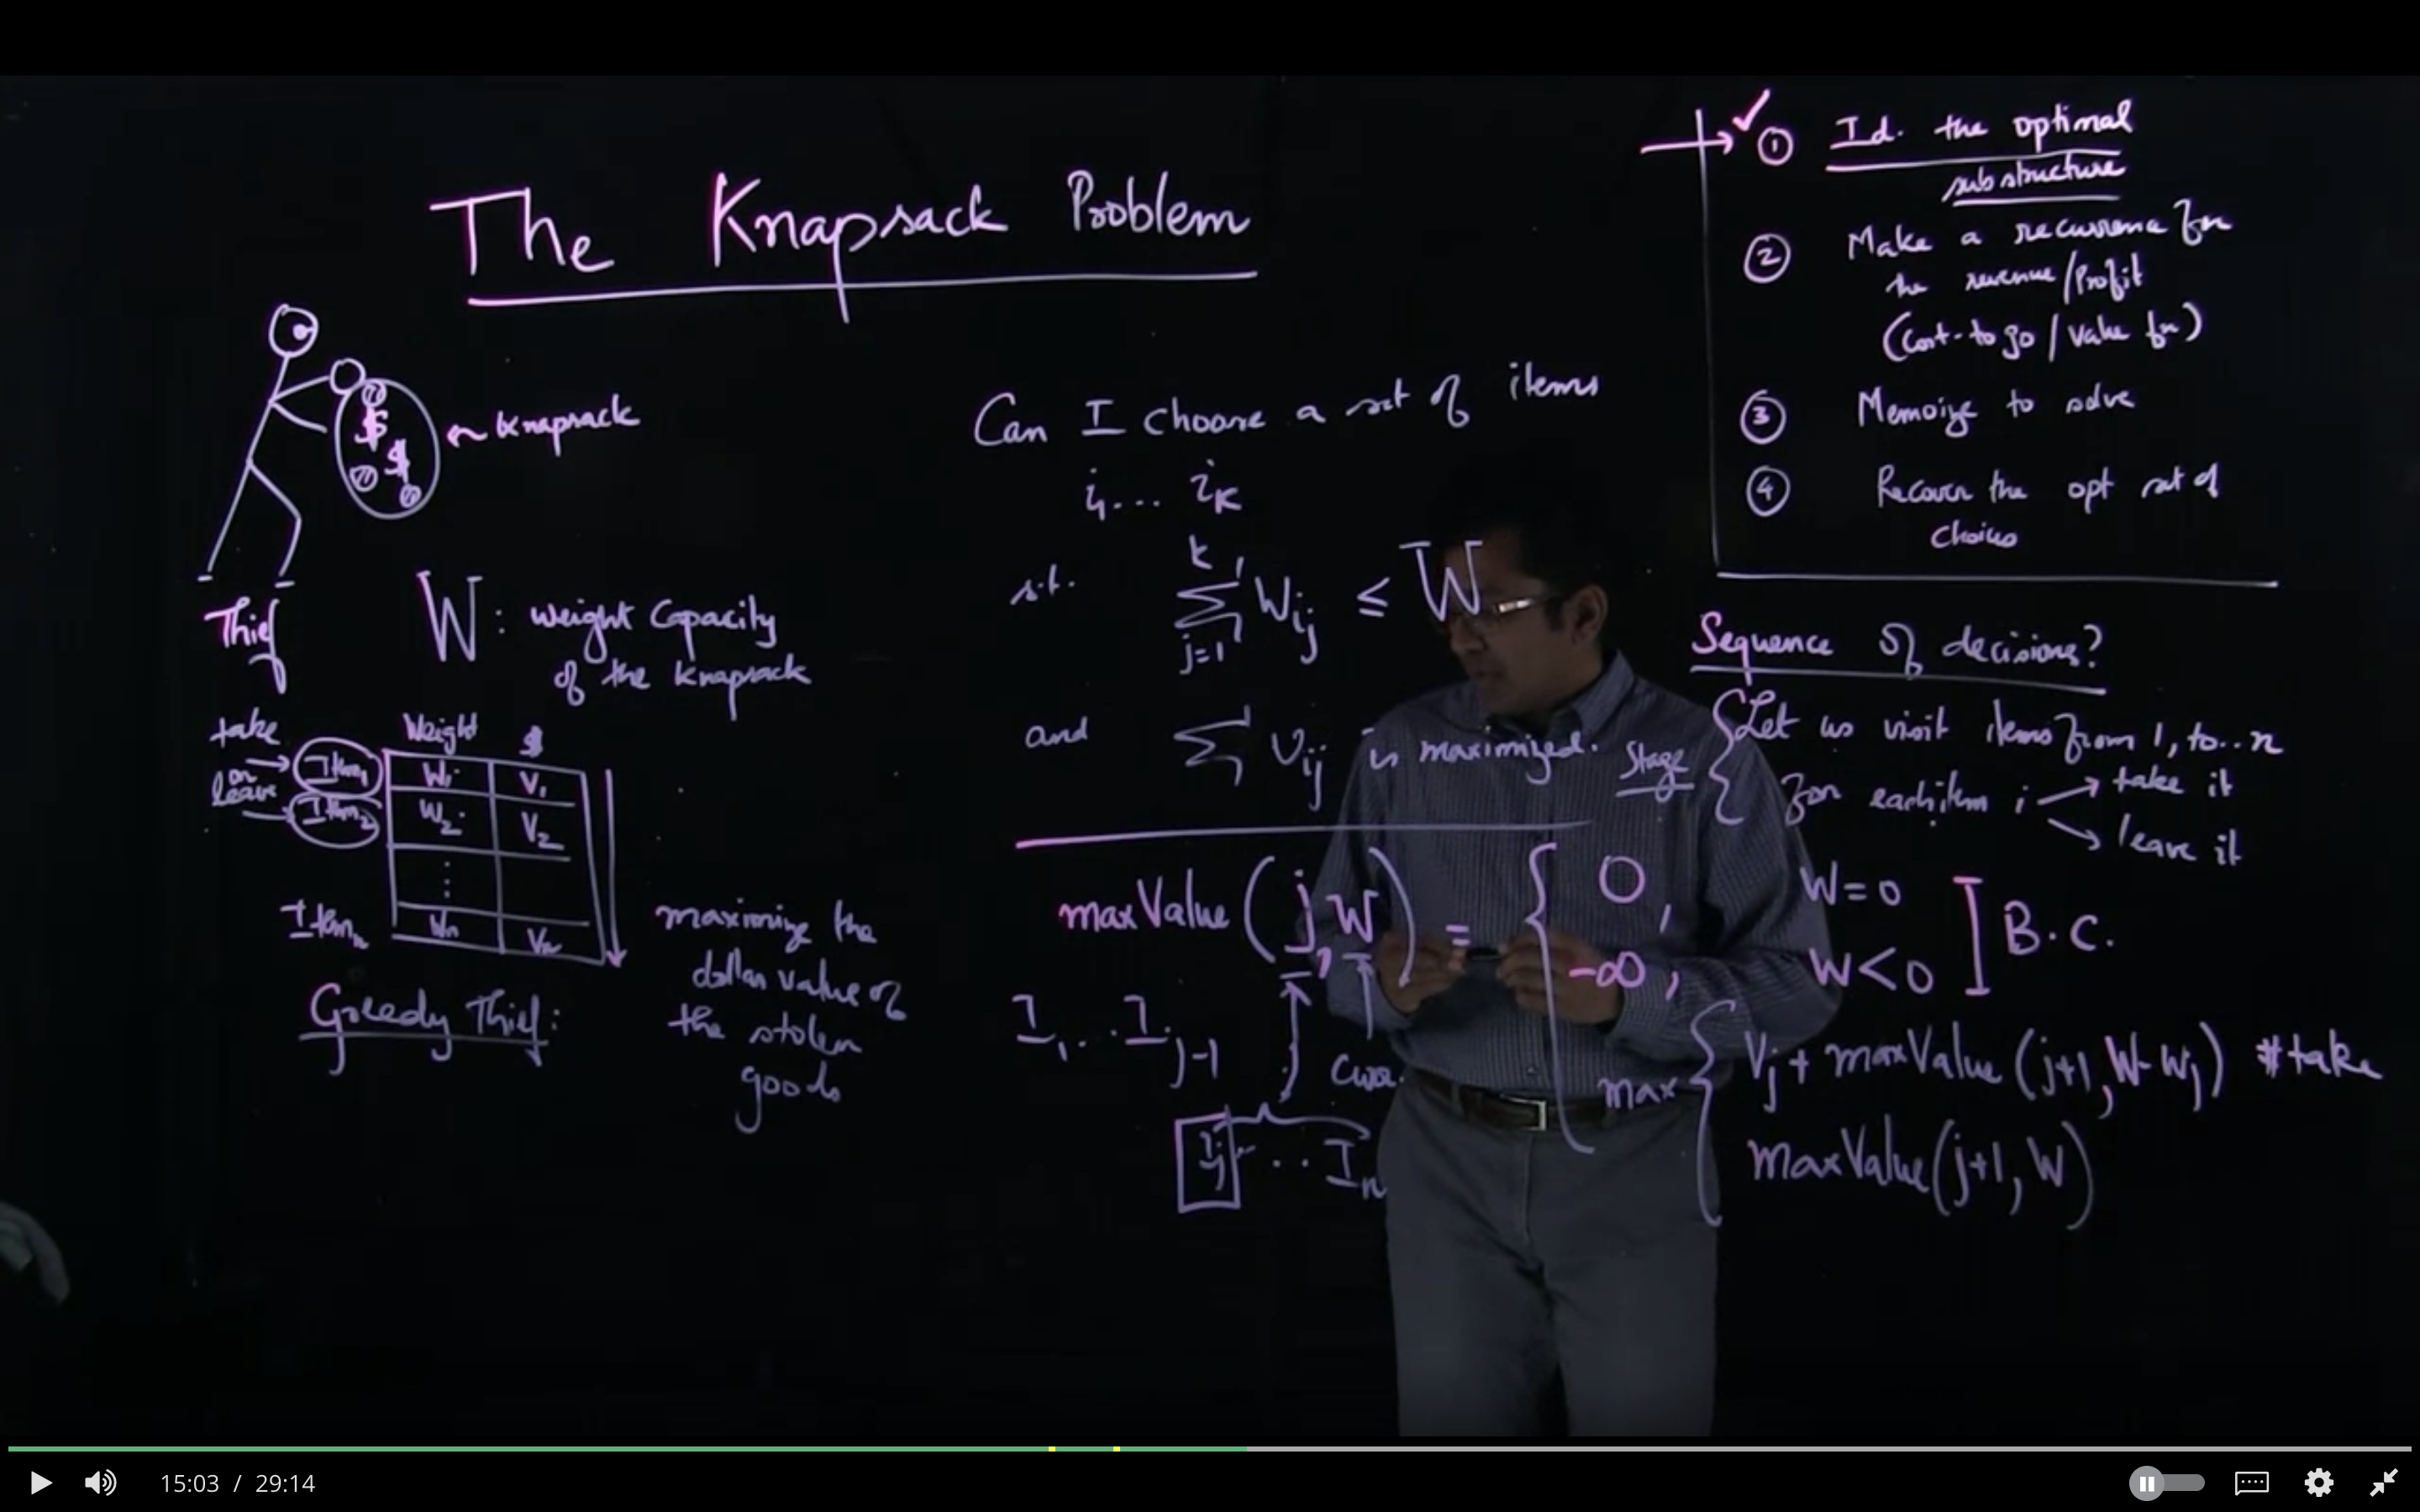 The Knapsack Problem
Knapsack
Thief
W : weight Capacity
of the knapsack
take
or
leave
Weight $
Item1 W1 V1
Item2 W2 V2
⋮
Itemn Wn Vn
Greedy Thief:
maximize the
dollar value of
the stolen
goods
Can I choose a set of items
i1... iK
s.t. k Σ j=1 Wij ≤ W
and Σ Vij is maximized.
maxValue (j, W) = { 0, W=0
-∞, W<0
] B.C.
max { Vj + maxValue (j+1, W-Wj) #take
maxValue(j+1, W)
I1...Ij-1
Ij ... In
① Id. the optimal
substructure
② Make a recurrence fn
the revenue/Profit
(Cost-to go / Value fn)
③ Memoize to solve
④ Recover the opt set of
choices
Sequence of decisions?
Stage { Let us visit items from 1, to..n
For each item i
take it
leave it
15:03 / 29:14